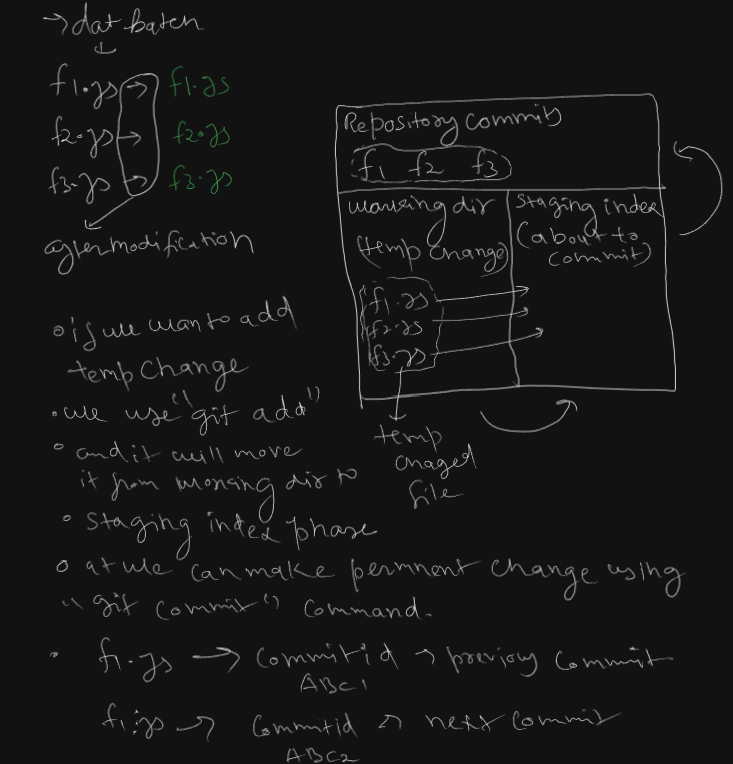 → dat batch
f1.js → f1.js
f2.js → f2.js
f3.js → f3.js
after modification
Repository commits
f1 f2 f3
working dir
(temp change)
f1.js
f2.js
f3.js
temp
chaged
file
staging index
(about to
commit)
• if we wan to add
temp change
• we use "git add"
• and it will move
it from working dir to
• staging index phase
• at we can make permnent change using
"git commit" command.
• f1.js → commit id → previou commit
ABC1
f1.js → commtid → next commit
ABC2